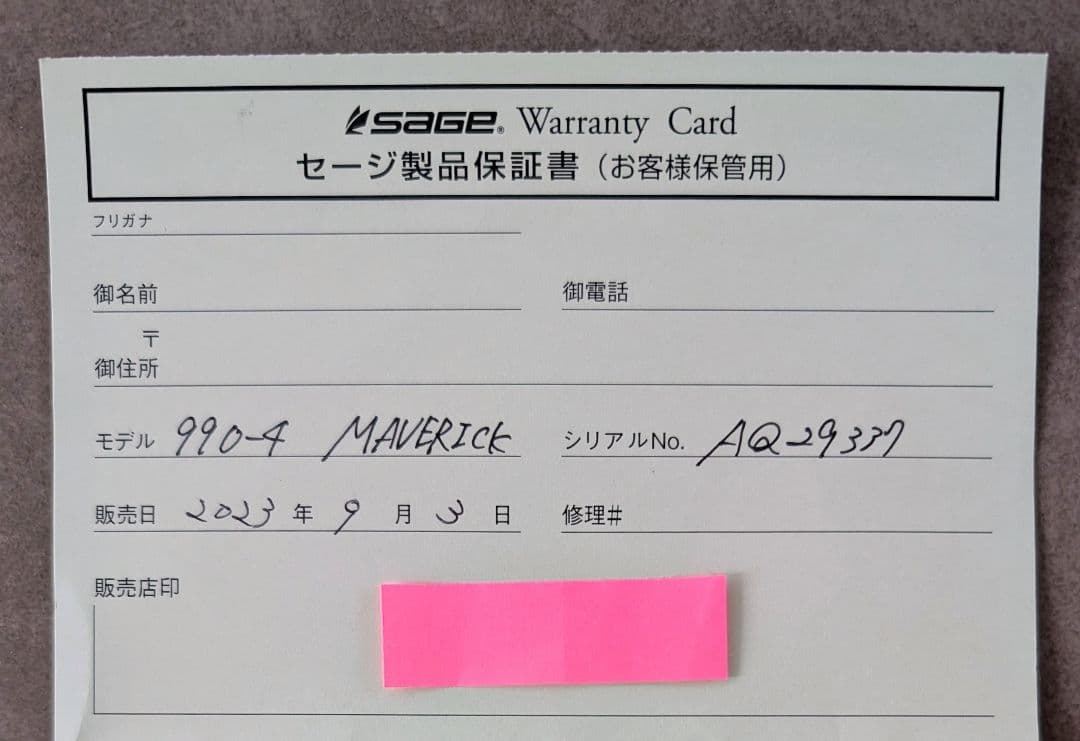 SAGE® Warranty Card
セージ製品保証書（お客様保管用）
フリガナ
御名前 御電話
〒
御住所
モデル 990-4 MAVERICK シリアルNo. AQ29337
販売日 2023 年 9 月 3 日 修理#
販売店印